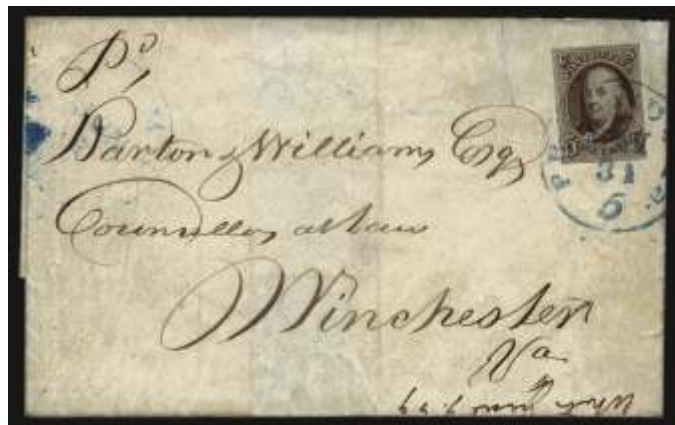 Pd
Barton & Williams Esq
Counsellors at Law
Winchester
Va
31
5